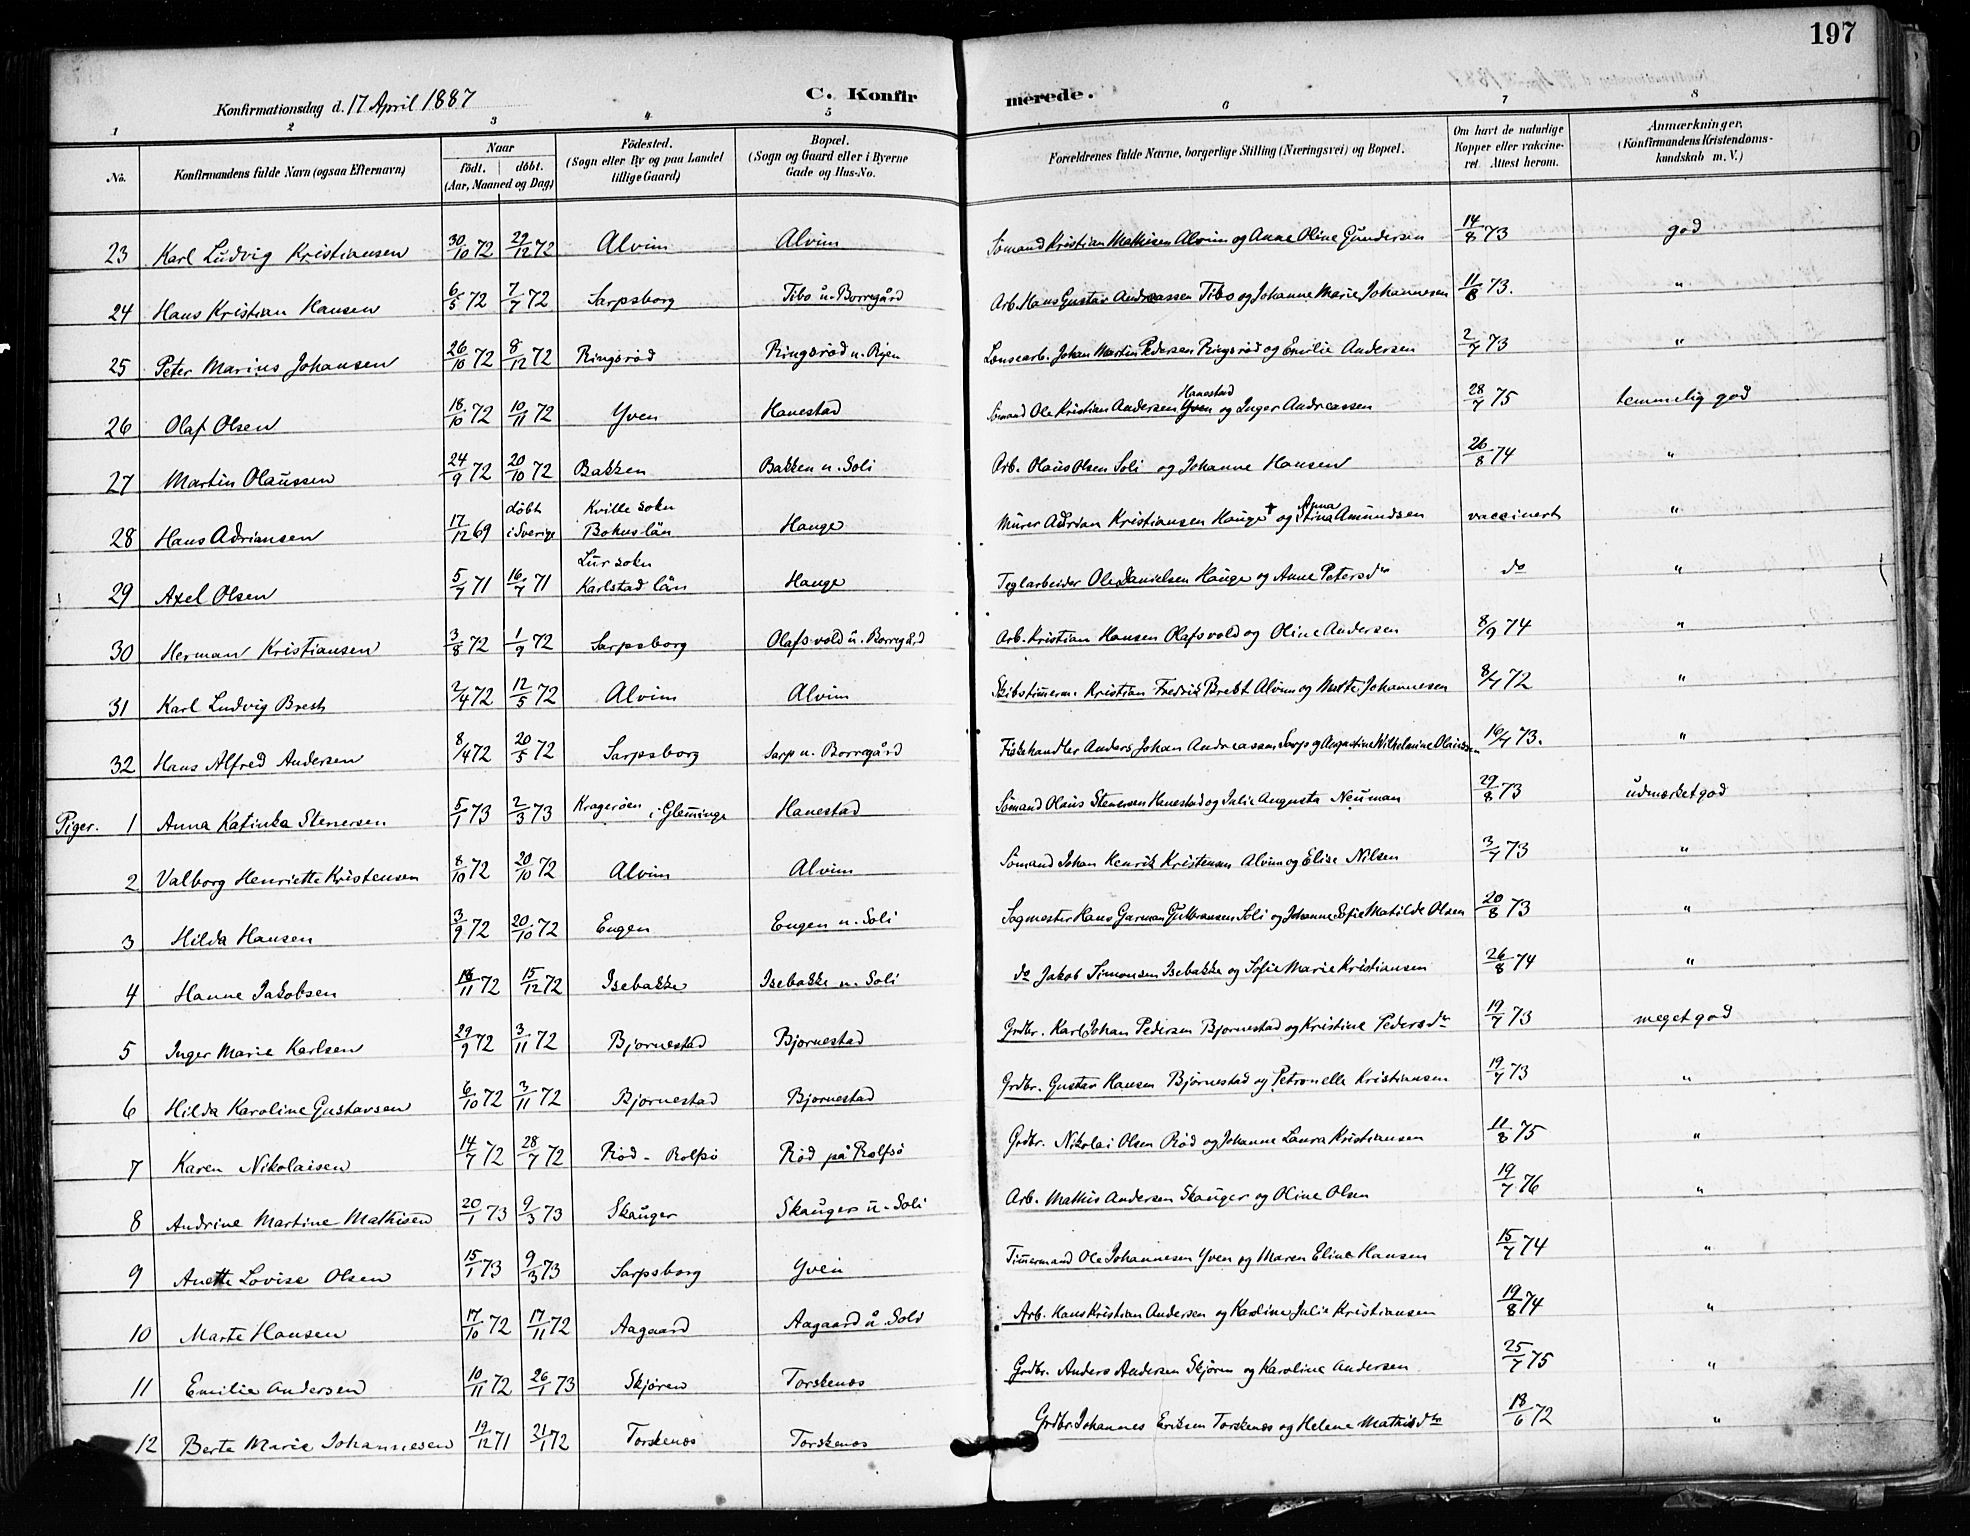 197
Konfirmationsdag d. 17 April 1887
C. Konfirmerede.
1 2 3 4 5 6 7 8
No. Konfirmandens fulde Navn (ogsaa Efternavn) Naar født. døbt. (Aar, Maaned og Dag) Fødested. (Sogn eller By og paa Landet tillige Gaard) Bopæl. (Sogn og Gaard eller i Byerne Gade og Hus-No. Forældrenes fulde Navne, borgerlige Stilling (Næringsvei) og Bopæl. Om havt de naturlige Kopper eller vakcineret. Attest herom. Anmærkninger. (Konfirmandens Kristendomskundskab m. V.)
23 Karl Ludvig Kristiansen 30/10 72 29/12 72 Alvim Alvim Sømand Kristian Mathisen Alvim og Anne Oline Gundersen 14/8 73 god
24 Hans Kristian Hansen 6/5 72 7/7 72 Sarpsborg Tibo u. Borregård Arb. Hans Gustav Andreassen Tibo og Johanne Marie Johannesen 11/8 73. "
25 Peter Marius Johansen 26/10 72 8/12 72 Ringsrød Ringsrød u. Ryen Lensearb. Johan Martin Pedersen Ringsrød og Emilie Andersen 2/7 73 "
26 Olaf Olsen 18/10 72 10/11 72 Yven Hanestad Sømand Ole Kristian Andersen Yven Hanestad og Inger Andreassen 28/7 75 temmelig god
27 Martin Olaussen 24/9 72 20/10 72 Bakken Bakken u. Soli Arb. Olaus Olsen Soli og Johanne Hansen 26/8 74 "
28 Hans Adriansen 17/12 69 døbt i Sverige Kville sokn Bohuslän Hauge Murer Adrian Kristiansen Hauge † og Anna Stina Amundsen vaccinert "
29 Axel Olsen 5/7 71 16/7 71 Lur sokn Karlstad län Hauge Teglarbeider Ole Danielsen Hauge og Anne Petersdr do "
30 Herman Kristiansen 3/8 72 1/9 72 Sarpsborg Olafsvold u. Borregård Arb. Kristian Hansen Olafsvold og Oline Andersen 8/9 74 "
31 Karl Ludvig Brest 2/4 72 12/5 72 Alvim Alvim Skibstimerm. Kristian Fredrik Brebt Alvim og Mette Johannesen 8/7 72 "
32 Hans Alfred Andersen 8/4 72 20/5 72 Sarpsborg Sarp u. Borregård Fiskehandler Anders Johan Andreassen Sarp og Augustine Wilhelmine Olaussen 16/7 73. "
Piger. 1 Anna Katinka Stenersen 5/1 73 2/3 73 Kragerøen i Glemminge Hanestad Sømand Olaus Stenersen Hanestad og Julie Augusta Neuman 29/8 73 udmærket god
2 Valborg Henriette Kristensen 8/10 72 20/10 72 Alvim Alvim Sømand Johan Henrik Kristensen Alvim og Elise Nilsen 3/7 73 "
3 Hilda Hansen 3/9 72 20/10 72 Engen Engen u. Soli Sagmester Hans Garman Gulbransen Soli og Johanne Sofie Matilde Olsen 20/8 73 "
4 Hanne Jakobsen 18/11 72 15/12 72 Isebakke Isebakke u. Soli do Jakob Simonsen Isebakke og Sofie Marie Kristiansen 26/8 74 "
5 Inger Marie Karlsen 29/9 72 3/11 72 Bjørnestad Bjørnestad Grdbr. Karl Johan Pedersen Bjørnestad og Kristine Pedersdr 19/7 73 meget god
6 Hilda Karoline Gustavsen 6/10 72 3/11 72 Bjørnestad Bjørnestad Grdbr. Gustav Hansen Bjørnestad og Petronelle Kristiansen 19/7 73 "
7 Karen Nikolaisen 14/7 72 28/7 72 Rød - Rolfsø Rød på Rolfsø Grdbr. Nikolai Olsen Rød og Johanne Laura Kristiansen 11/8 75 "
8 Andrine Martine Mathisen 20/1 73 9/3 73 Skauger Skauger u. Soli Arb. Mathis Andersen Skauger og Oline Olsen 19/7 76 "
9 Anette Lovise Olsen 15/1 73 9/3 73 Sarpsborg Yven Timermand Ole Johannesen Yven og Maren Eline Hansen 15/7 74 "
10 Marte Hansen 17/10 72 17/11 72 Aagaard Aagaard u. Soli Arb. Hans Kristian Andersen og Karoline Julie Kristiansen 19/8 74 "
11 Emilie Andersen 10/11 72 26/1 73 Skjøren Torskenæs Grdbr. Anders Andersen Skjøren og Karoline Andersen 25/7 75 "
12 Berte Marie Johannesen 19/12 71 21/1 72 Torskenæs Torskenæs Grdbr. Johannes Eriksen Torskenæs og Helene Mathisdtr 18/6 72 "